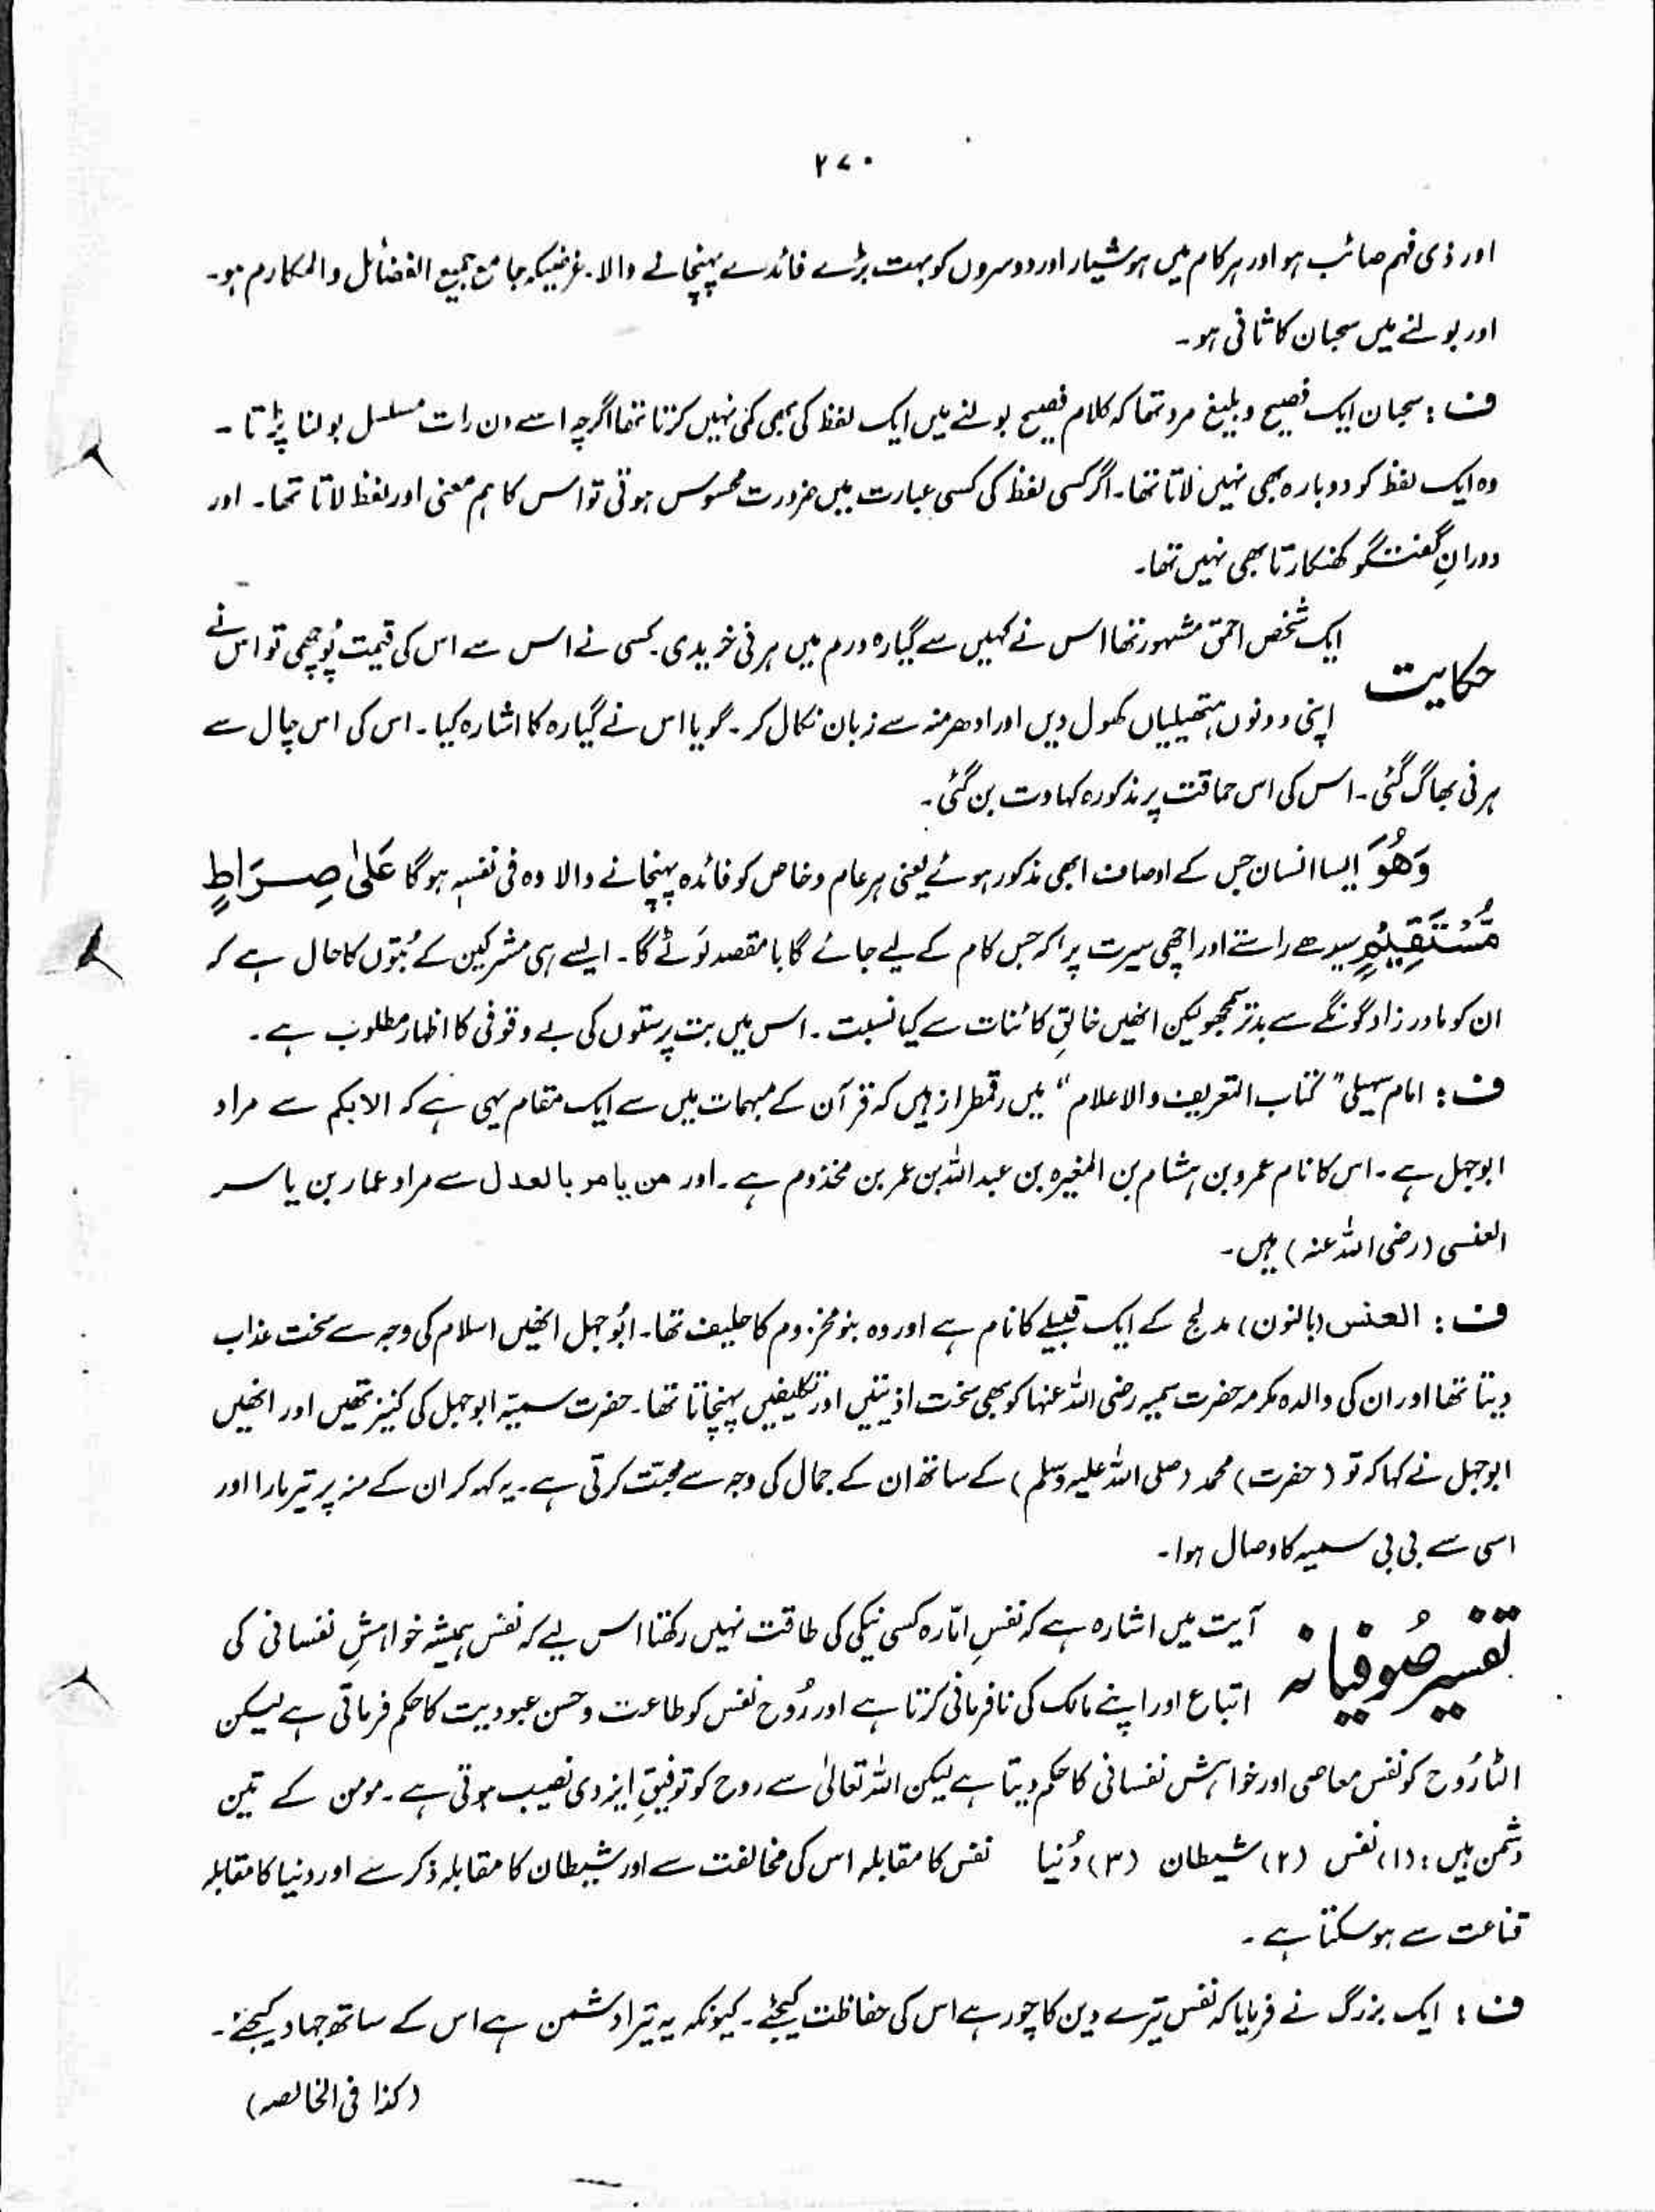 ۲۷۰
اور ذی فہم صائب ہو اور ہر کام میں ہوشیار اور دوسروں کو بہت بڑے فائدے پہنچانے والا۔ غرضیکہ جامع جمیع الفضائل والمکارم ہو۔
اور بولنے میں سحبان کا ثانی ہو۔
ف : سحبان ایک فصیح و بلیغ مرد تھا کہ کلام فصیح بولنے میں ایک لفظ کی بھی کمی نہیں کرتا تھا اگرچہ اسے دن رات مسلسل بولنا پڑتا ۔
وہ ایک لفظ کو دوبارہ بھی نہیں لاتا تھا۔ اگر کسی لفظ کی کسی عبارت میں ضرورت محسوس ہوتی تو اس کا ہم معنی اور لفظ لاتا تھا۔ اور
دورانِ گفتگو کھنکارتا بھی نہیں تھا۔
حکایت ایک شخص احمق مشہور تھا اس نے کہیں سے گیارہ درم میں ہرنی خریدی۔ کسی نے اس سے اس کی قیمت پُوچھی تو اس نے
اپنی دونوں ہتھیلیاں کھول دیں اور ادھر منہ سے زبان نکال کر ۔ گویا اس نے گیارہ کا اشارہ کیا ۔ اس کی اس چال سے
ہرنی بھاگ گئی ۔ اس کی اس حماقت پر مذکورہ کہاوت بن گئی ۔
وَهُوَ ایسا انسان جس کے اوصاف ابھی مذکور ہوئے یعنی ہر عام و خاص کو فائدہ پہنچانے والا وہ فی نفسہٖ ہوگا عَلٰى صِرَاطٍ
مُّسْتَقِيْمٍ سیدھے راستے اور اچھی سیرت پر کہ جس کام کے لیے جائے گا بامقصد لوٹے گا ۔ ایسے ہی مشرکین کے بُتوں کا حال ہے کہ
ان کو مادر زاد گونگے سے بدتر سمجھو لیکن انھیں خالقِ کائنات سے کیا نسبت ۔ اس میں بت پرستوں کی بے وقوفی کا اظہار مطلوب ہے ۔
ف : امام سہیلی "کتاب التعریف والاعلام" میں رقمطراز ہیں کہ قرآن کے مبہمات میں سے ایک مقام یہی ہے کہ الابکم سے مراد
ابوجہل ہے ۔ اس کا نام عمرو بن ہشام بن المغیرہ بن عبداللہ بن عمر بن مخذوم ہے ۔ اور من یامر بالعدل سے مراد عمار بن یاسر
العنسی (رضی اللہ عنہ) ہیں۔
ف : العنس (بالنون) مدلج کے ایک قبیلے کا نام ہے اور وہ بنو مخزوم کا حلیف تھا۔ ابُوجہل انھیں اسلام کی وجہ سے سخت عذاب
دیتا تھا اور ان کی والدہ مکرمہ حضرت سمیہ رضی اللہ عنہا کو بھی سخت اذیتیں اور تکلیفیں پہنچاتا تھا۔ حضرت سمیّہ ابوجہل کی کنیز تھیں اور انھیں
ابوجہل نے کہا کہ تو (حضرت) محمد (صلی اللہ علیہ وسلم) کے ساتھ ان کے جمال کی وجہ سے محبّت کرتی ہے ۔ یہ کہہ کر ان کے منہ پر تیر مارا اور
اسی سے بی بی سمیہ کا وصال ہوا۔
تفسیر صُوفیانہ آیت میں اشارہ ہے کہ نفسِ امّارہ کسی نیکی کی طاقت نہیں رکھتا اس لیے کہ نفس ہمیشہ خواہشِ نفسانی کی
اتباع اور اپنے مالک کی نافرمانی کرتا ہے اور رُوح نفس کو طاعت و حسن عبودیت کا حکم فرماتی ہے لیکن
الٹا رُوح کو نفس معاصی اور خواہشِ نفسانی کا حکم دیتا ہے لیکن اللہ تعالیٰ سے روح کو توفیقِ ایزدی نصیب ہوتی ہے ۔ مومن کے تین
دشمن ہیں : (۱) نفس (۲) شیطان (۳) دُنیا نفس کا مقابلہ اس کی مخالفت سے اور شیطان کا مقابلہ ذکر سے اور دنیا کا مقابلہ
قناعت سے ہو سکتا ہے ۔
ف : ایک بزرگ نے فرمایا کہ نفس تیرے دین کا چور ہے اس کی حفاظت کیجئے ۔ کیونکہ یہ تیرا دشمن ہے اس کے ساتھ جہاد کیجئے ۔
(کذا فی الخالصہ)